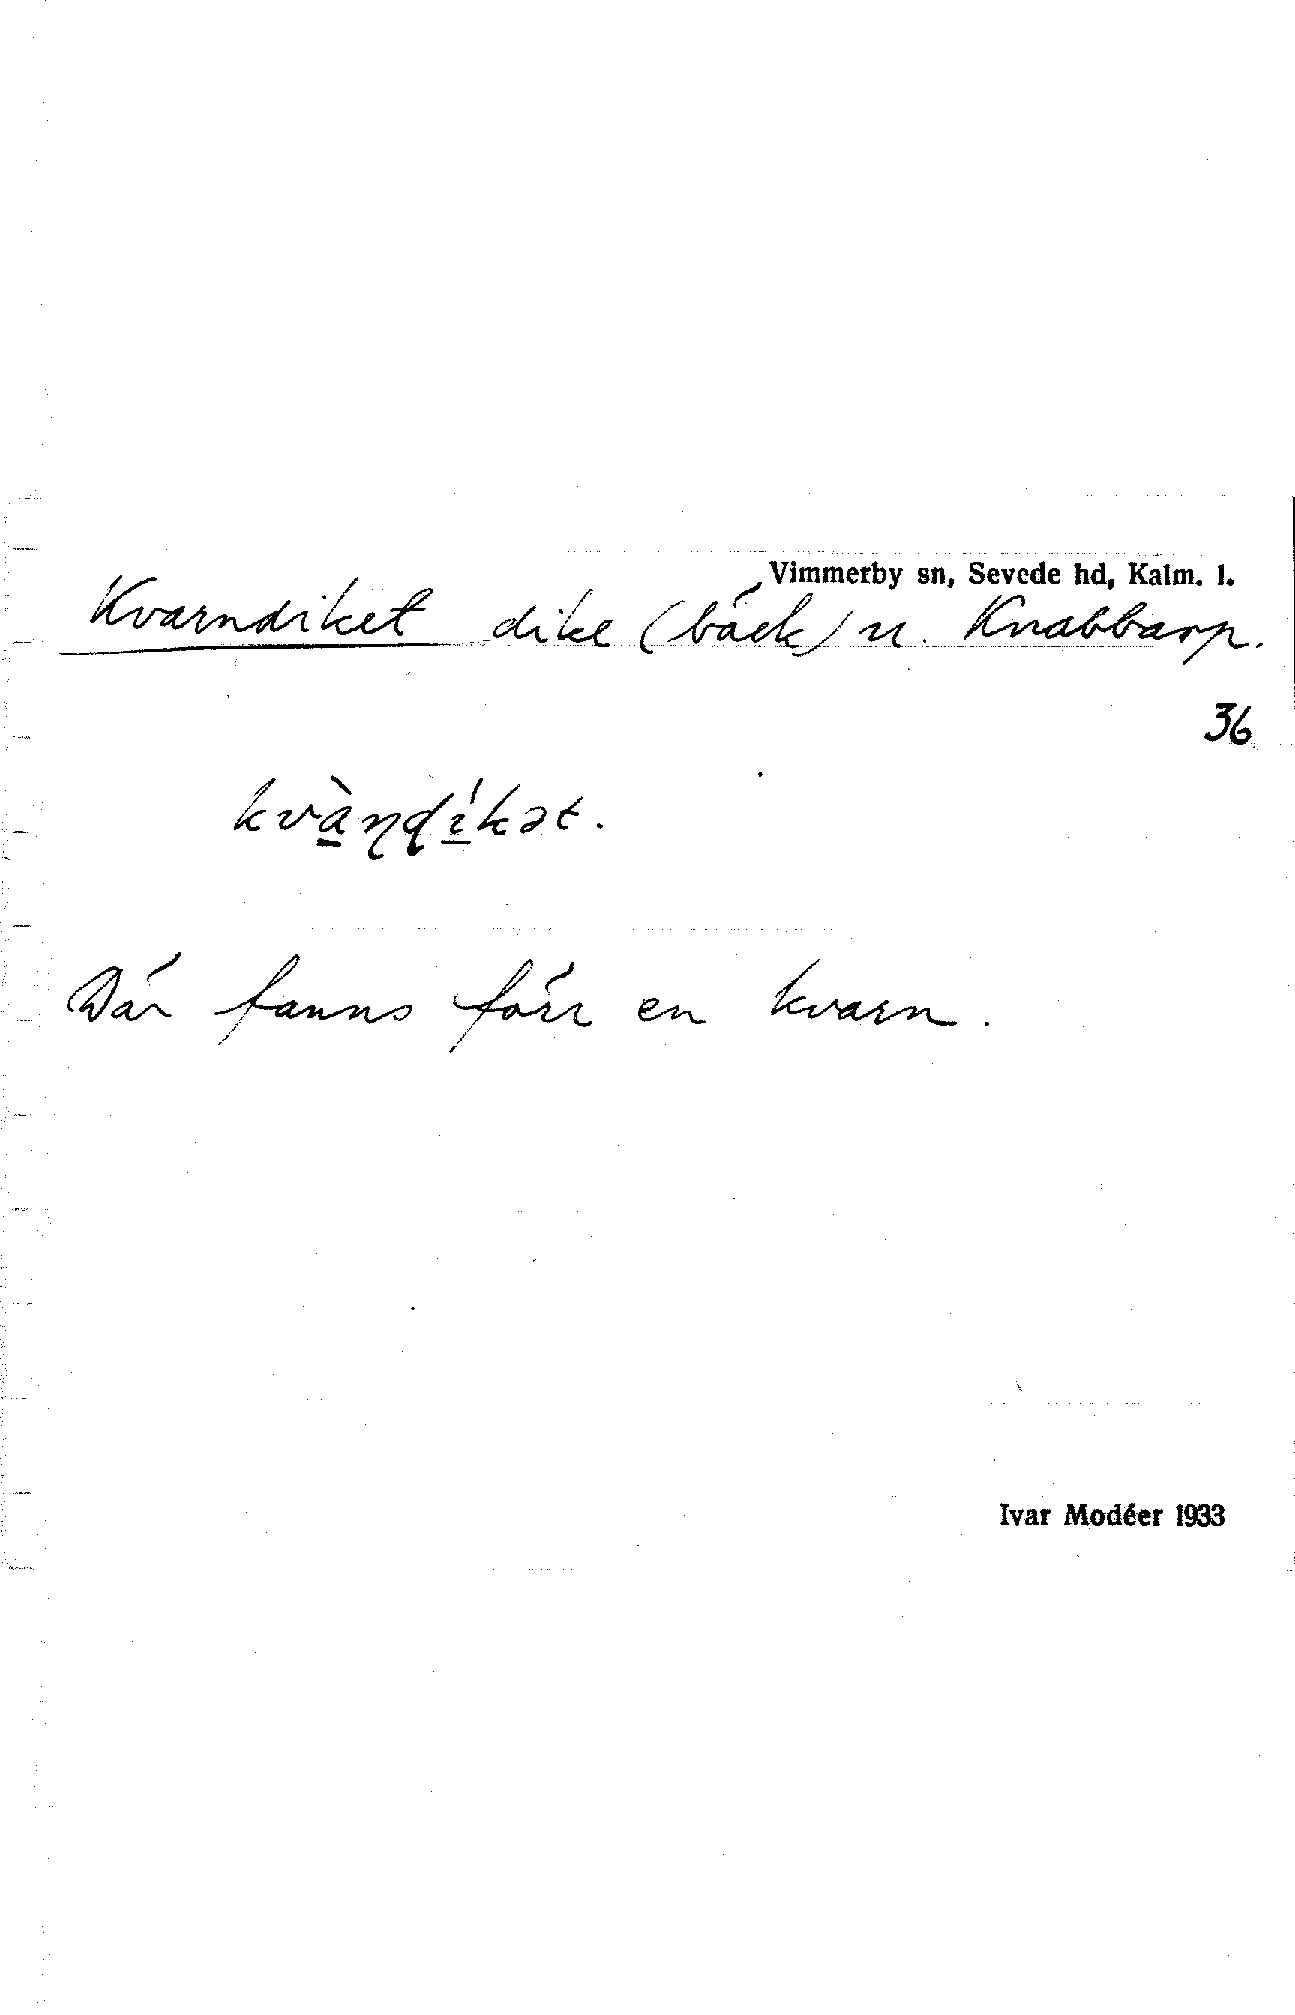 Vimmerby sn, Sevede hd, Kalm. l.
Kvarndiket dike (bäck) u. Knabbarp.
36
kvàɳɖíkət.
Där fanns förr en kvarn.
Ivar Modéer 1933